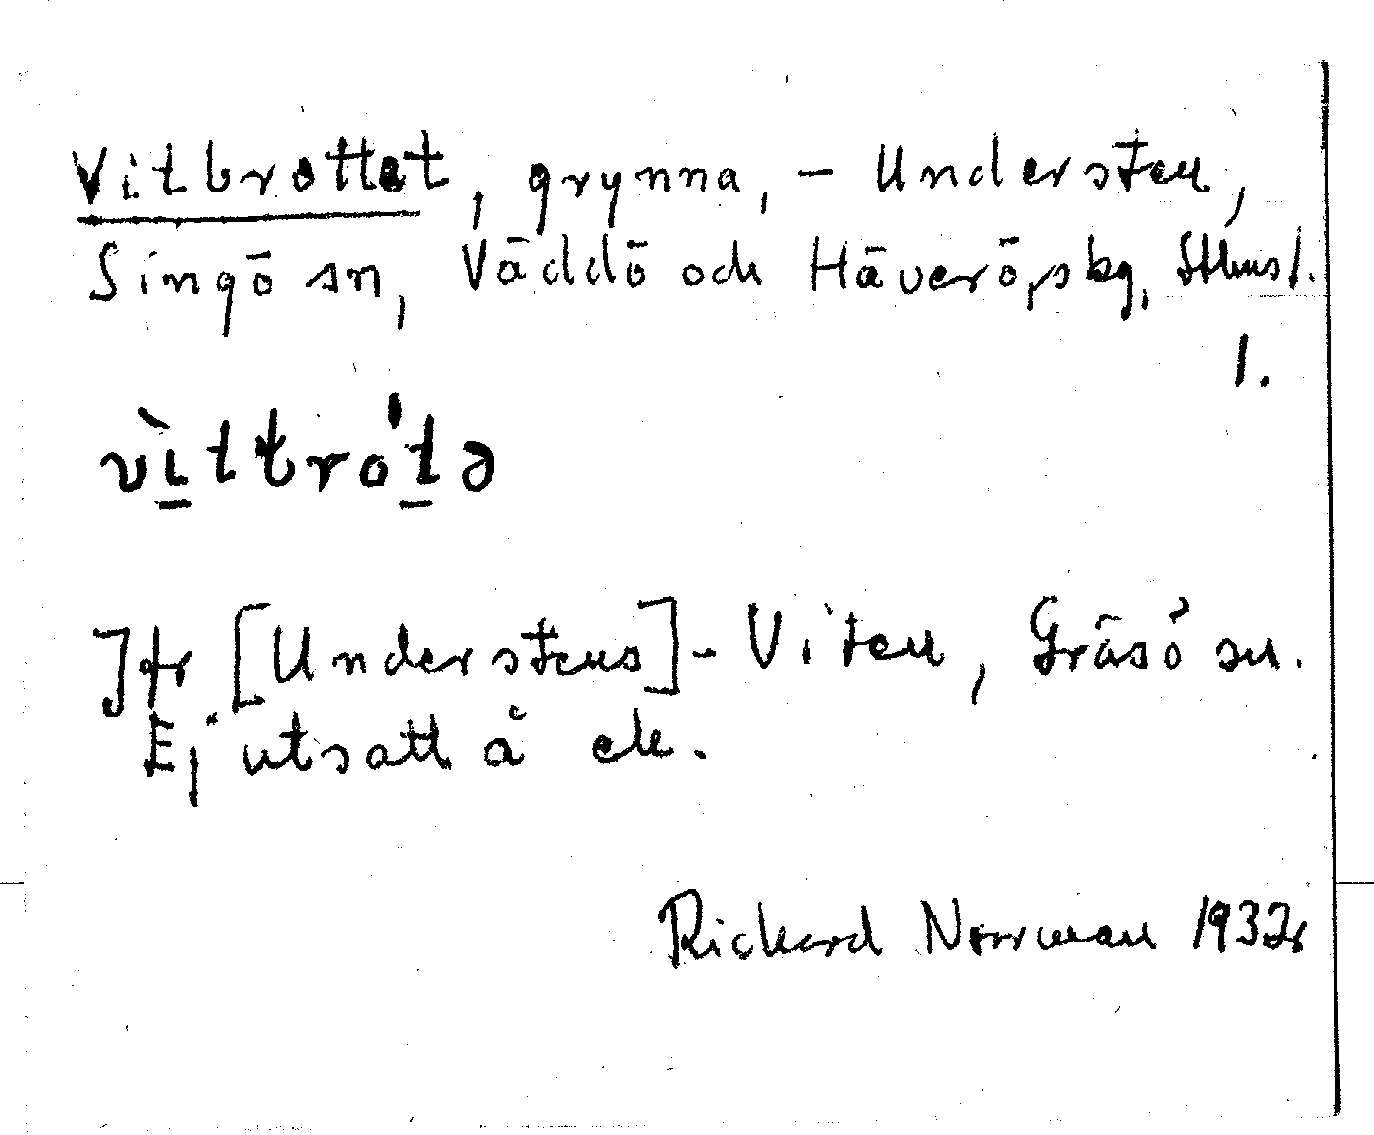 Vitbrottet, grynna, – Understen,
Singö sn, Väddö och Häverö, skg, Sthms l.
1.
vìttro'tə
Jfr [Understens] - Viten, Gräsö sn.
Ej utsatt å ek.
Richard Norrman 1932